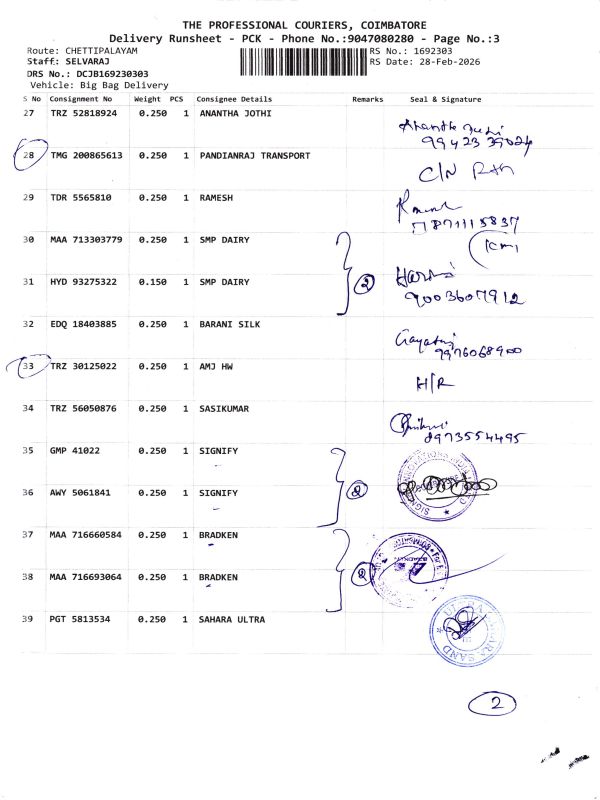 THE PROFESSIONAL COURIERS, COIMBATORE
Delivery Runsheet - PCK - Phone No.:9047080280 - Page No.:3
Route: CHETTIPALAYAM RS No.: 1692303
Staff: SELVARAJ RS Date: 28-Feb-2026
DRS No.: DCJB169230303
Vehicle: Big Bag Delivery
S No Consignment No Weight PCS Consignee Details Remarks Seal & Signature
27 TRZ 52818924 0.250 1 ANANTHA JOTHI
28 TMG 200865613 0.250 1 PANDIANRAJ TRANSPORT C/N
29 TDR 5565810 0.250 1 RAMESH
30 MAA 713303779 0.250 1 SMP DAIRY
31 HYD 93275322 0.150 1 SMP DAIRY 2 9003607912
32 EDQ 18403885 0.250 1 BARANI SILK 9976068900
33 TRZ 30125022 0.250 1 AMJ HW H/R
34 TRZ 56050876 0.250 1 SASIKUMAR 8973554495
35 GMP 41022 0.250 1 SIGNIFY
36 AWY 5061841 0.250 1 SIGNIFY 2
37 MAA 716660584 0.250 1 BRADKEN
38 MAA 716693064 0.250 1 BRADKEN 2
39 PGT 5813534 0.250 1 SAHARA ULTRA
2